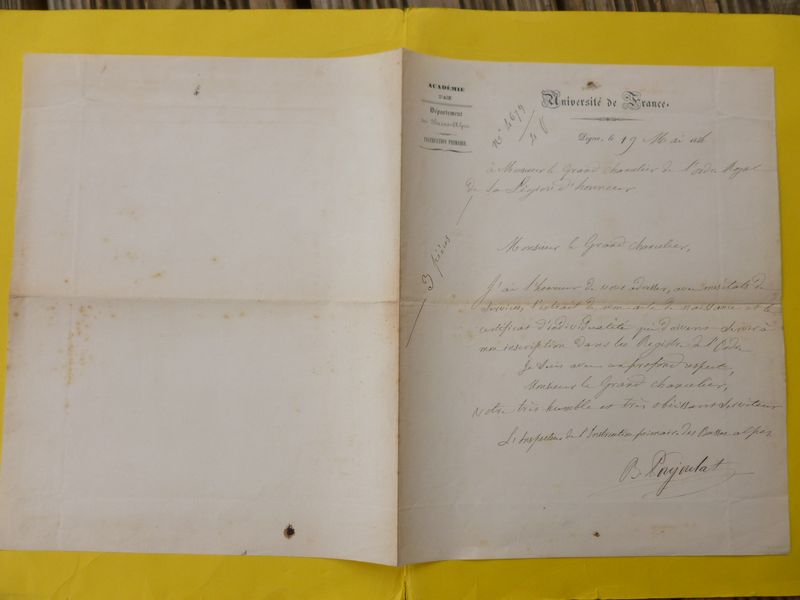 ACADÉMIE
D'AIX
Département
des Basses-Alpes
INSTRUCTION PRIMAIRE
Université de France.
Digne, le 19 Mai
à Monsieur le Grand chancelier de l'ordre Royal
de la Légion d'honneur
3 pièces
Monsieur le Grand chancelier,
J'ai l'honneur de vous adresser, avec mes états de
services, l'extrait de mon acte de naissance et le
certificat d'individualité qui doivent servir à
mon inscription dans les Registres de l'Ordre
Je suis avec un profond respect,
Monsieur le Grand chancelier,
Votre très humble et très obéissant serviteur
L'Inspecteur de l'Instruction primaire des Basses alpes
B. Poujoulat